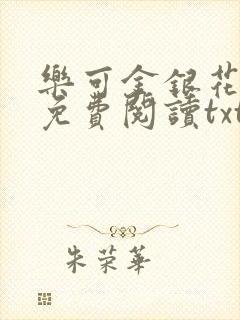 樂可金銀花
免費閱讀txt
朱荣華